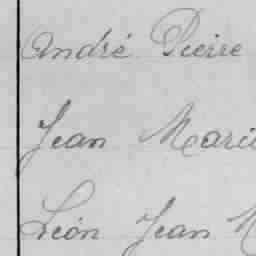 André Pierre
Jean Marie
Léon Jean